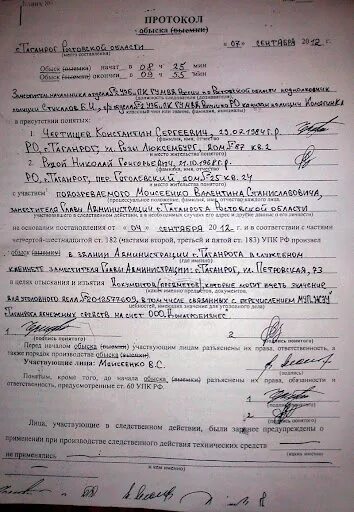 ПРОТОКОЛ
обыска (выемки)
г. Таганрог Ростовской области
«07» сентября 2012 г.
Обыск (выемка) начат в 08 ч 25 мин
Обыск (выемка) окончен в 09 ч 55 мин
в присутствии понятых:
1. Чертищев Константин Сергеевич, 23.02.1984 г.р.
(фамилия, имя, отчество
РО, г. Таганрог, ул. Розы Люксембург, дом № 87 кв. 2
и место жительства понятого)
2. Рудой Николай Григорьевич, 21.10.1968 г.р.
(фамилия, имя, отчество
РО, г. Таганрог, пер. Гоголевский, дом № 25 кв. 24
и место жительства понятого)
с участием подозреваемого Моисеенко Валентина Станиславовича,
(процессуальное положение, фамилия, имя, отчество
заместителя Главы Администрации г. Таганрога Ростовской области
участвовавшего в следственном действии, а в необходимых случаях его адрес и другие данные о его личности)
на основании постановления от «04» сентября 2012 г. и в соответствии с частями
четвертой-шестнадцатой ст. 182 (частями второй, третьей и пятой ст. 183) УПК РФ произвел
обыск (выемку) в здании Администрации г. Таганрога в служебном
(где именно)
кабинете заместителя Главы Администрации: г. Таганрог, ул. Петровская, 73
в целях отыскания и изъятия документов (предметов), которые могут иметь значение
(каких именно предметов, документов,
для уголовного дела № 2012577609, в том числе связанных с перечислением МУП "ЖЭУ"
ценностей, имеющих значение для уголовного дела)
г. Таганрога денежных средств на счет ООО
1
(подпись понятого)
2
(подпись понятого)
Перед началом обыска (выемки) участвующим лицам разъяснены их права, ответственность, а
также порядок производства обыска (выемки).
Участвующие лица: Моисеенко В.С.
(подпись)
Понятым, кроме того, до начала обыска (выемки) разъяснены их права, обязанности и
ответственность, предусмотренные ст. 60 УПК РФ.
1
(подпись понятого)
2
(подпись понятого)
Лица, участвующие в следственном действии, были заранее предупреждены о
применении при производстве следственного действия технических средств
не применялись
и кем именно)